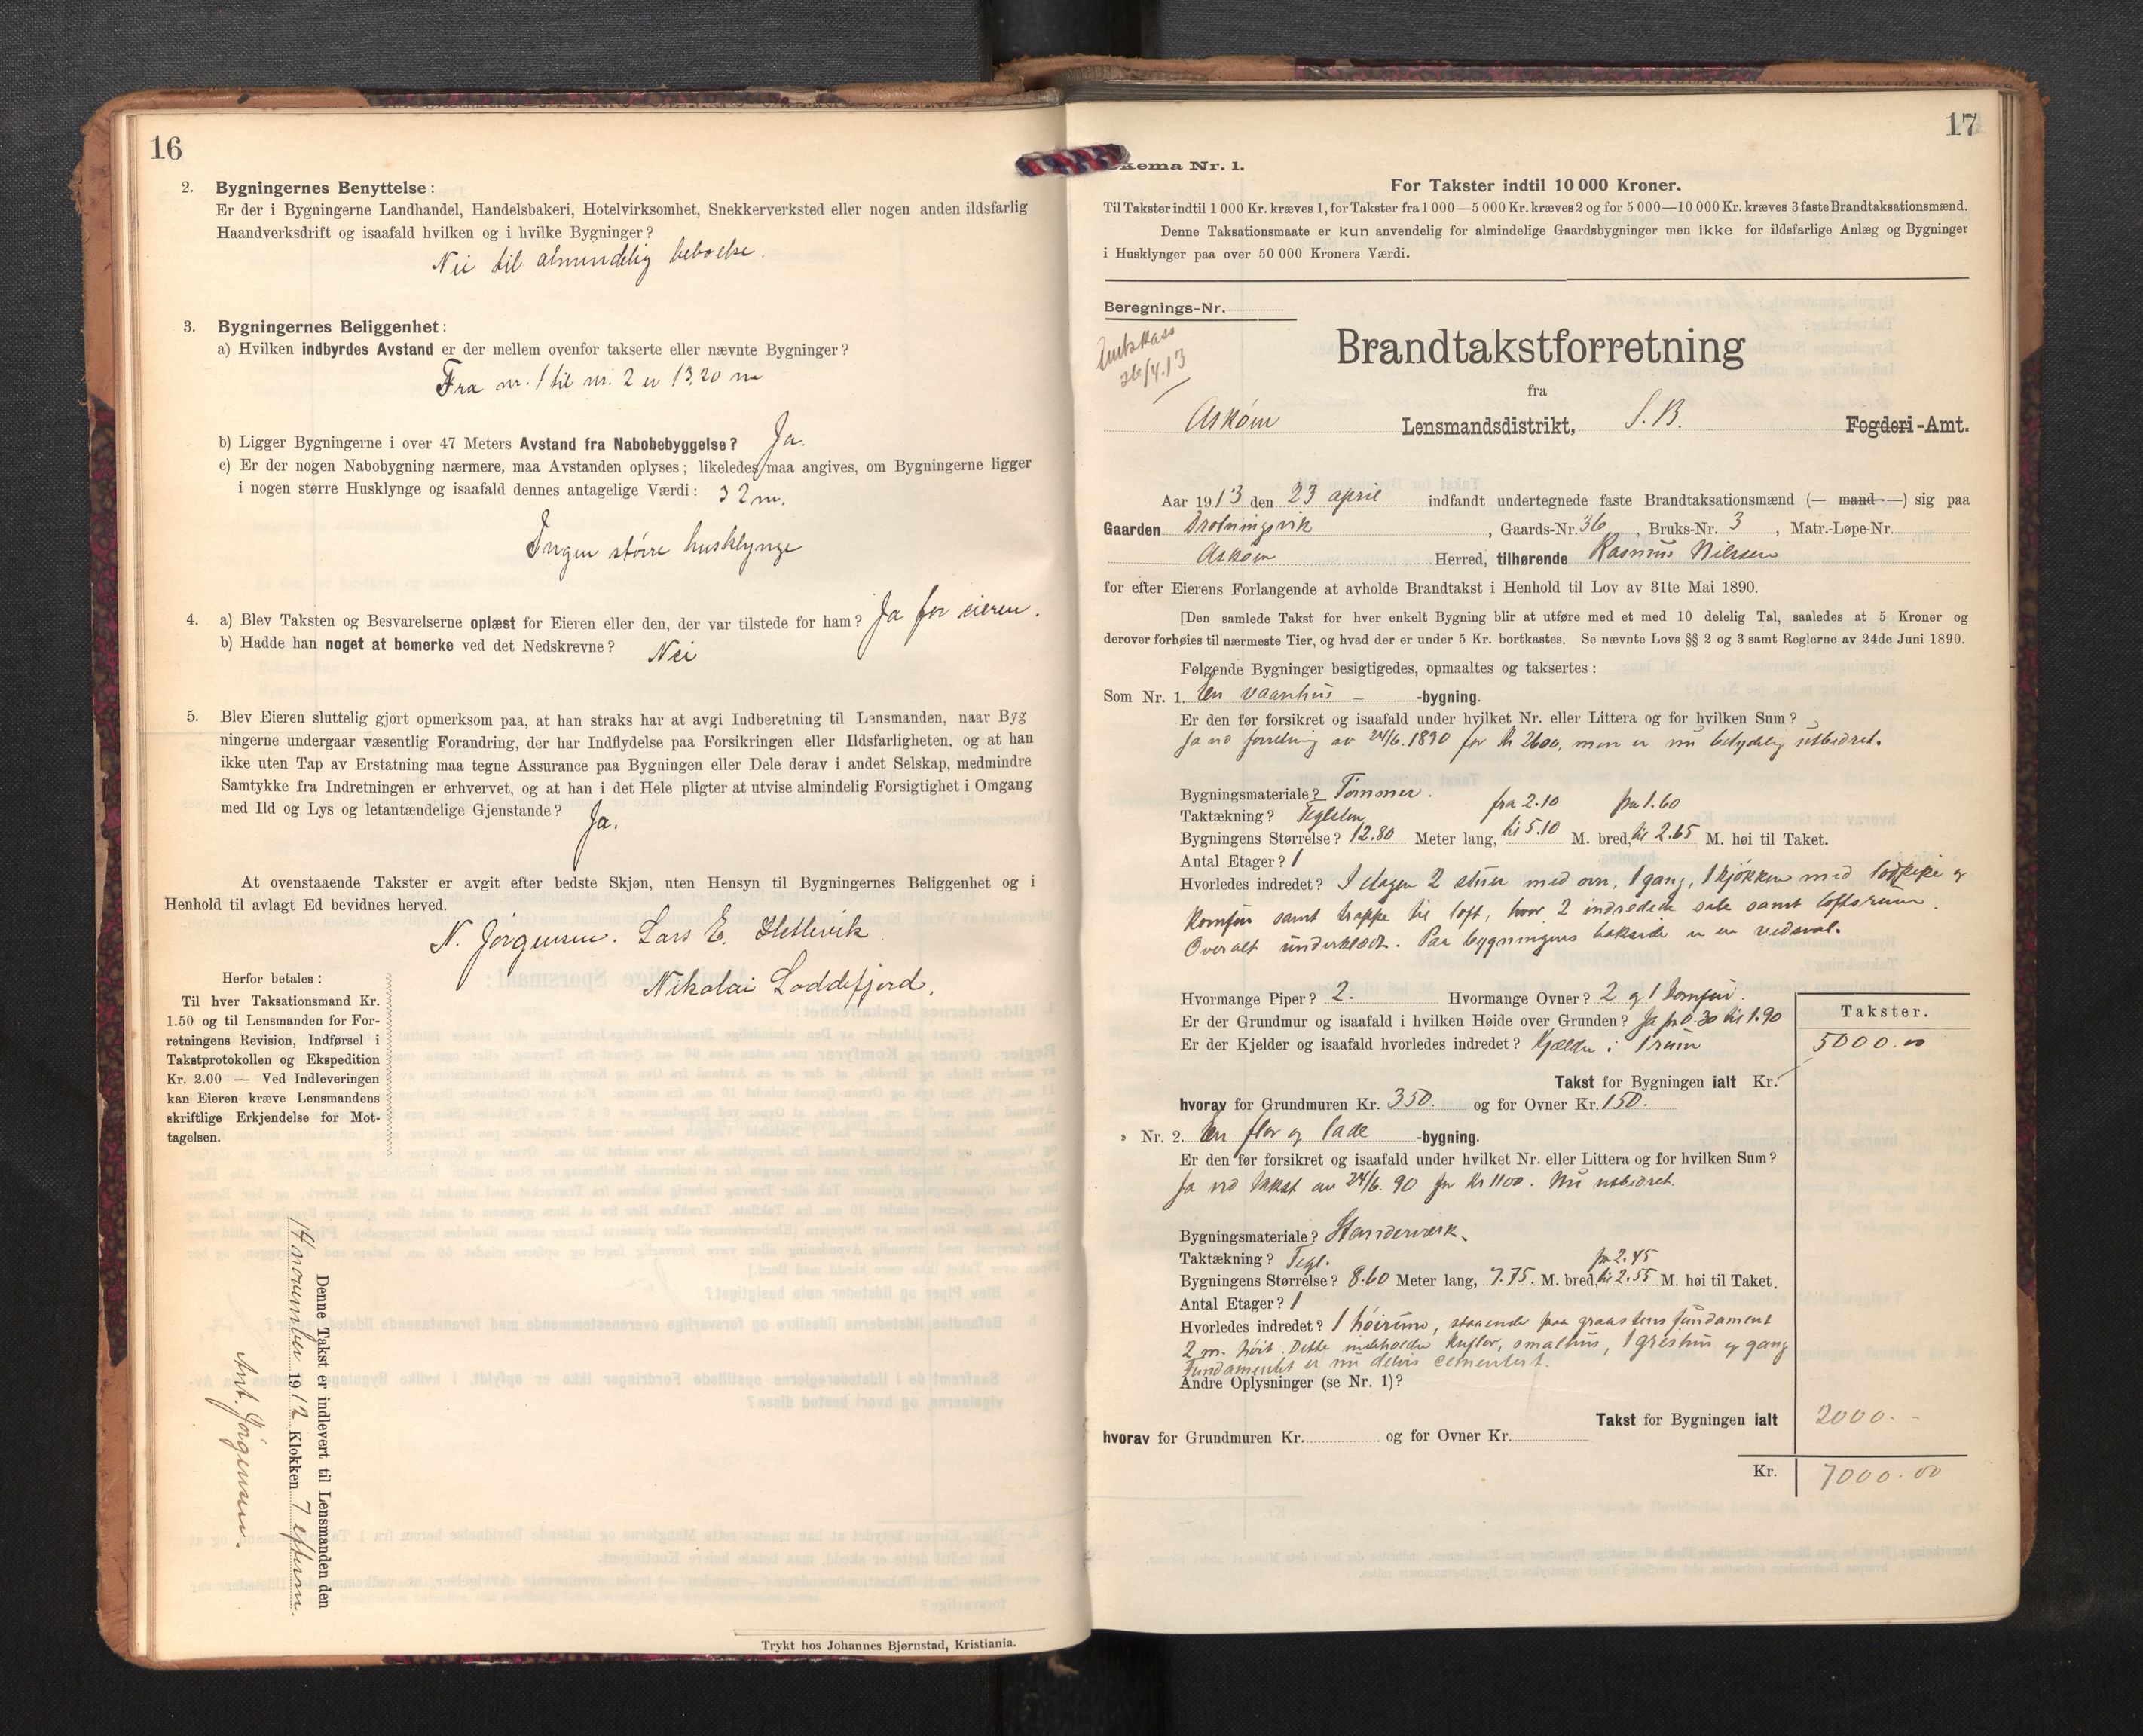 16
2. Bygningernes Benyttelse:
Er der i Bygningerne Landhandel, Handelsbakeri, Hotelvirksomhet, Snekkerverksted eller nogen anden ildsfarlig
Haandverksdrift og isaafald hvilken og i hvilke Bygninger?
Nei til almindelig beboelse.
3. Bygningernes Beliggenhet:
a) Hvilken indbyrdes Avstand er der mellem ovenfor takserte eller nævnte Bygninger?
Fra nr. 1 til nr. 2 er 13,20 m
b) Ligger Bygningerne i over 47 Meters Avstand fra Nabobebyggelse? Ja.
c) Er der nogen Nabobygning nærmere, maa Avstanden oplyses; likeledes maa angives, om Bygningerne ligger
i nogen større Husklynge og isaafald dennes antagelige Værdi: 32 m.
Ingen större husklynge
4. a) Blev Taksten og Besvarelserne oplæst for Eieren eller den, der var tilstede for ham? Ja for eieren.
b) Hadde han noget at bemerke ved det Nedskrevne? Nei
5. Blev Eieren sluttelig gjort opmerksom paa, at han straks har at avgi Indberetning til Lensmanden, naar Byg
ningerne undergaar væsentlig Forandring, der har Indflydelse paa Forsikringen eller Ildsfarligheten, og at han
ikke uten Tap av Erstatning maa tegne Assurance paa Bygningen eller Dele derav i andet Selskap, medmindre
Samtykke fra Indretningen er erhvervet, og at han i det Hele pligter at utvise almindelig Forsigtighet i Omgang
med Ild og Lys og letantændelige Gjenstande? Ja.
At ovenstaaende Takster er avgit efter bedste Skjøn, uten Hensyn til Bygningernes Beliggenhet og i
Henhold til avlagt Ed bevidnes herved.
N. Jörgensen. Lars E. Hetlevik
Nikolai Loddefjord.
Herfor betales:
Til hver Taksationsmand Kr.
1.50 og til Lensmanden for For-
retningens Revision, Indførsel i
Takstprotokollen og Ekspedition
Kr. 2.00 — Ved Indleveringen
kan Eieren kræve Lensmandens
skriftlige Erkjendelse for Mot-
tagelsen.
Denne Takst er indlevert til Lensmanden den
14 november 1912 Klokken 7 efterm.
Ant. Jörgensen.
Trykt hos Johannes Bjørnstad, Kristiania.
17
kema Nr. 1.
For Takster indtil 10 000 Kroner.
Til Takster indtil 1 000 Kr. kræves 1, for Takster fra 1 000—5 000 Kr. kræves 2 og for 5 000—10 000 Kr. kræves 3 faste Brandtaksationsmænd.
Denne Taksationsmaate er kun anvendelig for almindelige Gaardsbygninger men ikke for ildsfarlige Anlæg og Bygninger
i Husklynger paa over 50 000 Kroners Værdi.
Beregnings-Nr.
26/4.13
Brandtakstforretning
fra
Askøen Lensmandsdistrikt, S. B. Fogderi-Amt.
Aar 1913 den 23 april indfandt undertegnede faste Brandtaksationsmænd (— mand —) sig paa
Gaarden Drotningsvik, Gaards-Nr. 36, Bruks-Nr. 3, Matr.-Løpe-Nr.
Askøen Herred, tilhørende Rasmus Nilssen
for efter Eierens Forlangende at avholde Brandtakst i Henhold til Lov av 31te Mai 1890.
[Den samlede Takst for hver enkelt Bygning blir at utføre med et med 10 delelig Tal, saaledes at 5 Kroner og
derover forhøies til nærmeste Tier, og hvad der er under 5 Kr. bortkastes. Se nævnte Lovs §§ 2 og 3 samt Reglerne av 24de Juni 1890.
Følgende Bygninger besigtigedes, opmaaltes og taksertes:
Som Nr. 1. En vaanhus - -bygning.
Er den før forsikret og isaafald under hvilket Nr. eller Littera og for hvilken Sum?
Ja ved forretning av 24/6. 1890 for kr 2600, men er nu betydelig utbedret.
Bygningsmateriale? Tømmer.
Taktækning? Teglsten fra 2.10 fra 1.60
Bygningens Størrelse? 12.80 Meter lang, til 5.10 M. bred, til 2.65 M. høi til Taket.
Antal Etager? 1
Hvorledes indredet? I etagen 2 stuer med ovn, 1 gang, 1 kjøkken med og
komfur samt trappe til loft, hvor 2 indredede sale samt loftsrum.
Overalt underklædt. Paa bygningens bakside er en vedsval.
Hvormange Piper? 2. Hvormange Ovner? 2 og 1 komfur.
Er der Grundmur og isaafald i hvilken Høide over Grunden? Ja fra 0.30 til 1.90
Er der Kjelder og isaafald hvorledes indredet? Kjælder i 1 rum
Takster.
5000.00
Takst for Bygningen ialt Kr.
hvorav for Grundmuren Kr. 350. og for Ovner Kr. 150.
» Nr. 2. En flor og lade -bygning.
Er den før forsikret og isaafald under hvilket Nr. eller Littera og for hvilken Sum?
Ja ved takst av 24/6. 90 for kr 1100. Nu utbedret.
Bygningsmateriale? Standerværk.
Taktækning? Tegl. fra 2.45
Bygningens Størrelse? 8.60 Meter lang, 7.75. M. bred, til 2.55 M. høi til Taket.
Antal Etager? 1
Hvorledes indredet? 1 höirum, staaende paa graastensfundament
2 m. høit. Dette indeholder kuflor, smalhus, 1 grishus og gang
Fundamentet er nu delvis cementert.
Andre Oplysninger (se Nr. 1)?
Takst for Bygningen ialt 2000. -
hvorav for Grundmuren Kr. og for Ovner Kr.
Kr. 7000.00